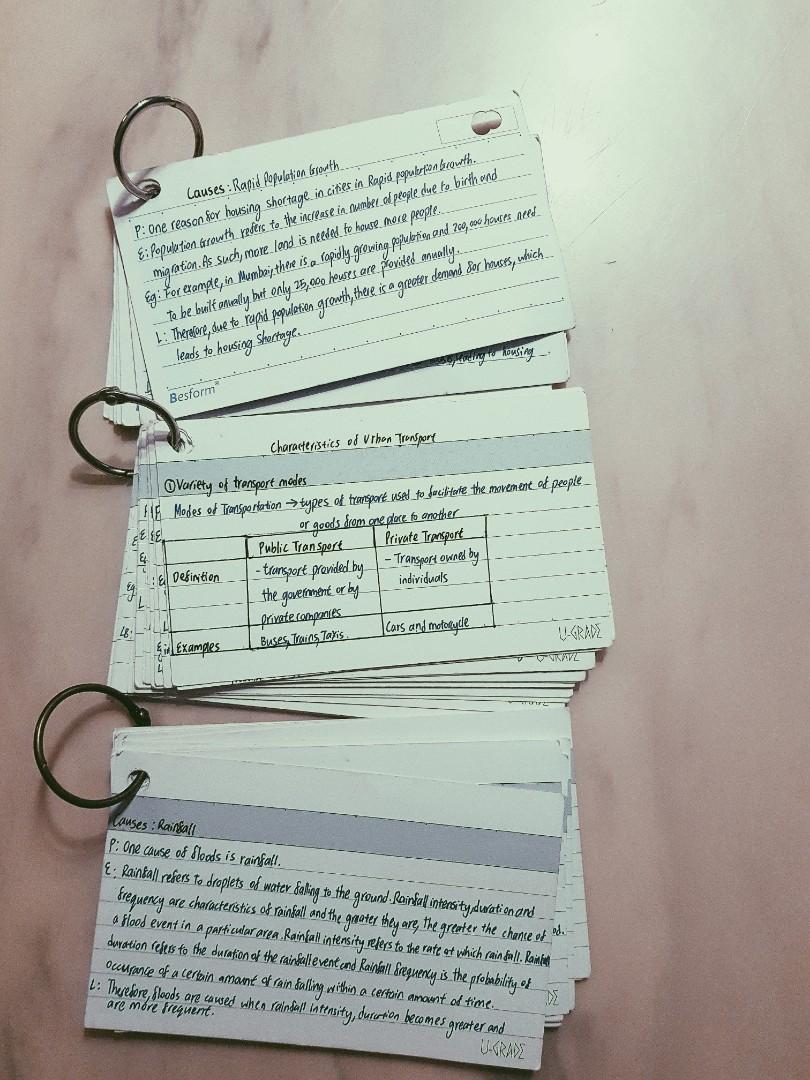 Causes: Rapid Population Growth
P: One reason for housing shortage in cities in Rapid population Growth.
E: Population Growth refers to the increase in number of people due to birth and
migration. As such, more land is needed to house more people.
Eg: For example, in Mumbai, there is a rapidly growing population and 200,000 houses need
to be built anually but only 25,000 houses are provided anually.
L: Therefore, due to rapid population growth, there is a greater demand for houses, which
leads to housing shortage.
Besform
leading to housing
Characteristics of Urban Transport
① Variety of transport modes
Modes of Transportation → types of transport used to facilitate the movement of people
or goods from one place to another
Public Transport Private Transport
Definition - transport provided by the government or by private companies - Transport owned by individuals
Examples Buses, Trains, Taxis. Cars and motorcycle
U-GRADE
U-GRADE
Causes: Rainfall
P: One cause of floods is rainfall.
E: Rainfall refers to droplets of water falling to the ground. Rainfall intensity, duration and
frequency are characteristics of rainfall and the greater they are, the greater the chance of
a flood event in a particular area. Rainfall intensity refers to the rate at which rain fall. Rainfall
duration refers to the duration of the rainfall event and Rainfall frequency is the probability of
occurance of a certain amount of rain falling within a certain amount of time.
L: Therefore, floods are caused when rainfall intensity, duration becomes greater and
are more frequent.
U-GRADE